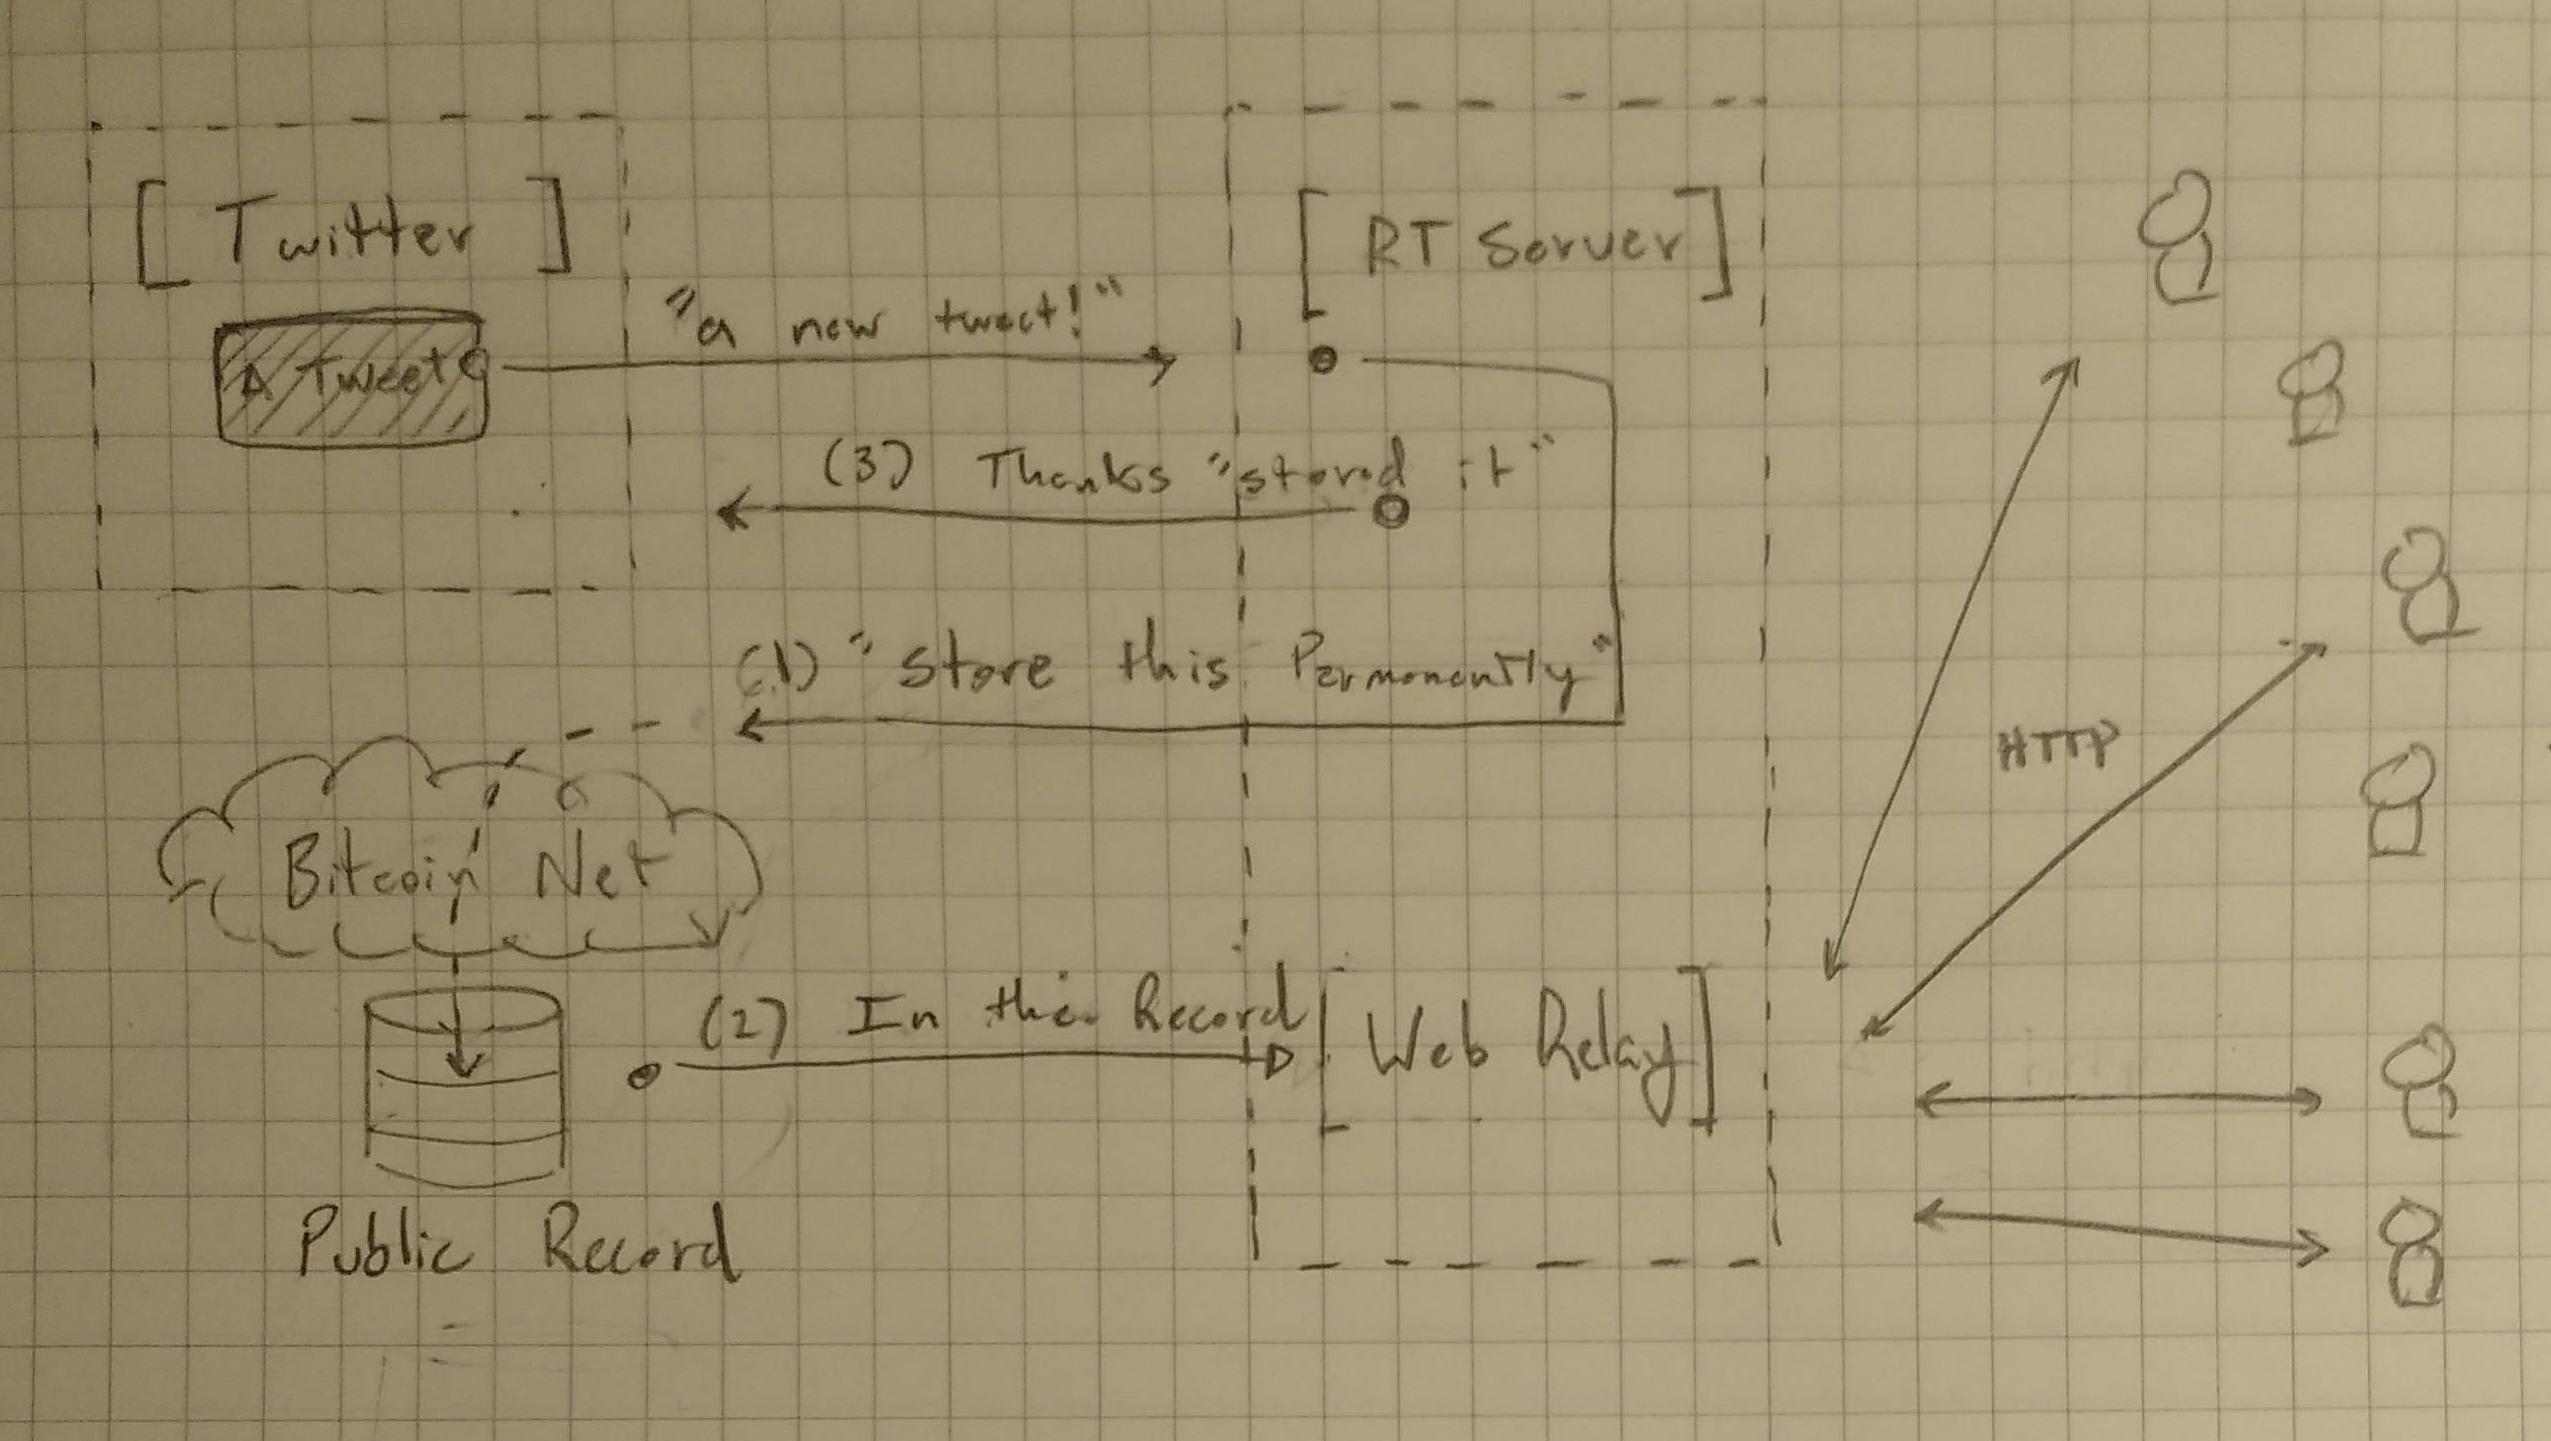 [ Twitter ]
[ RT Server ]
"a new tweet!"
A Tweet
(3) Thanks "stored it"
(1) "Store this Permanently"
HTTP
Bitcoin Net
(2) In the Record
[ Web Relay ]
Public Record